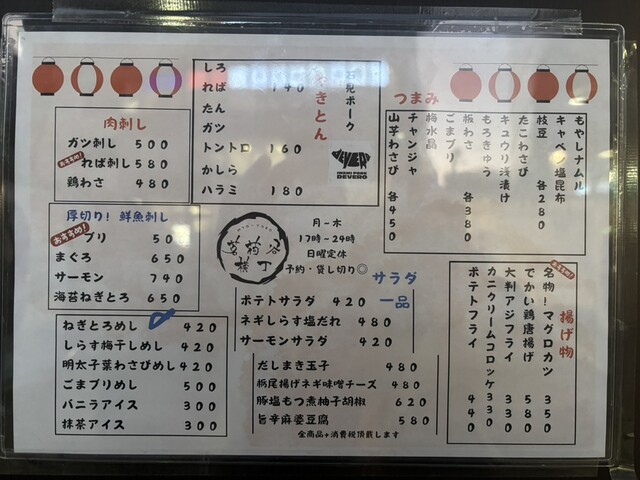 肉刺し
ガツ刺し 500
おすすめ!
れば刺し 580
鶏わさ 480
厚切り! 鮮魚刺し
おすすめ!
ブリ 50
まぐろ 650
サーモン 740
海苔ねぎとろ 650
ねぎとろめし 420
しらす梅干しめし 420
明太子葉わさびめし 420
ごまブリめし 500
バニラアイス 300
抹茶アイス 300
石見ポーク
きとん
しろ
れば 140
たん
ガツ
トントロ 160
かしら
ハラミ 180
IWAMI PORK
DEVERO
横丁
月-木
17時-24時
日曜定休
予約・貸し切り◎
サラダ
ポテトサラダ 420
ネギしらす塩だれ 480
サーモンサラダ 420
一品
だしまき玉子 480
栃尾揚げネギ味噌チーズ 480
豚塩もつ煮柚子胡椒 620
旨辛麻婆豆腐 580
全商品+消費税頂戴します
つまみ
もやしナムル
キャベツ塩昆布
枝豆 各280
たこわさび
キュウリ浅漬け
もろきゅう
板わさ 各380
ごまブリ
梅水晶
チャンジャ
山芋わさび 各450
揚げ物
名物!マグロカツ 350
でかい鶏唐揚げ 580
大判アジフライ 330
カニクリームコロッケ 330
ポテトフライ 440